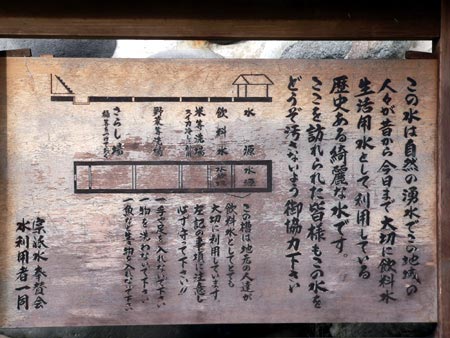 この水は自然の湧水でこの地域の
人々が昔から今日まで大切に飲料水
生活用水として利用している
歴史ある綺麗な水です。
ここを訪れられた皆様もこの水を
どうぞ汚さないよう御協力下さい
水源
飲料水
米等洗場
野菜等洗場
さらし場
水源
水槽
この槽は地元の人達が
飲料水としてとても
大切に利用しています
左記の事項に注意し
必ず守って下さい!!
一手や足を入れないで下さい
一物をあらわないで下さい
一魚など生き物を入れないで下さい
宗祇水奉賛会
水利用者一同